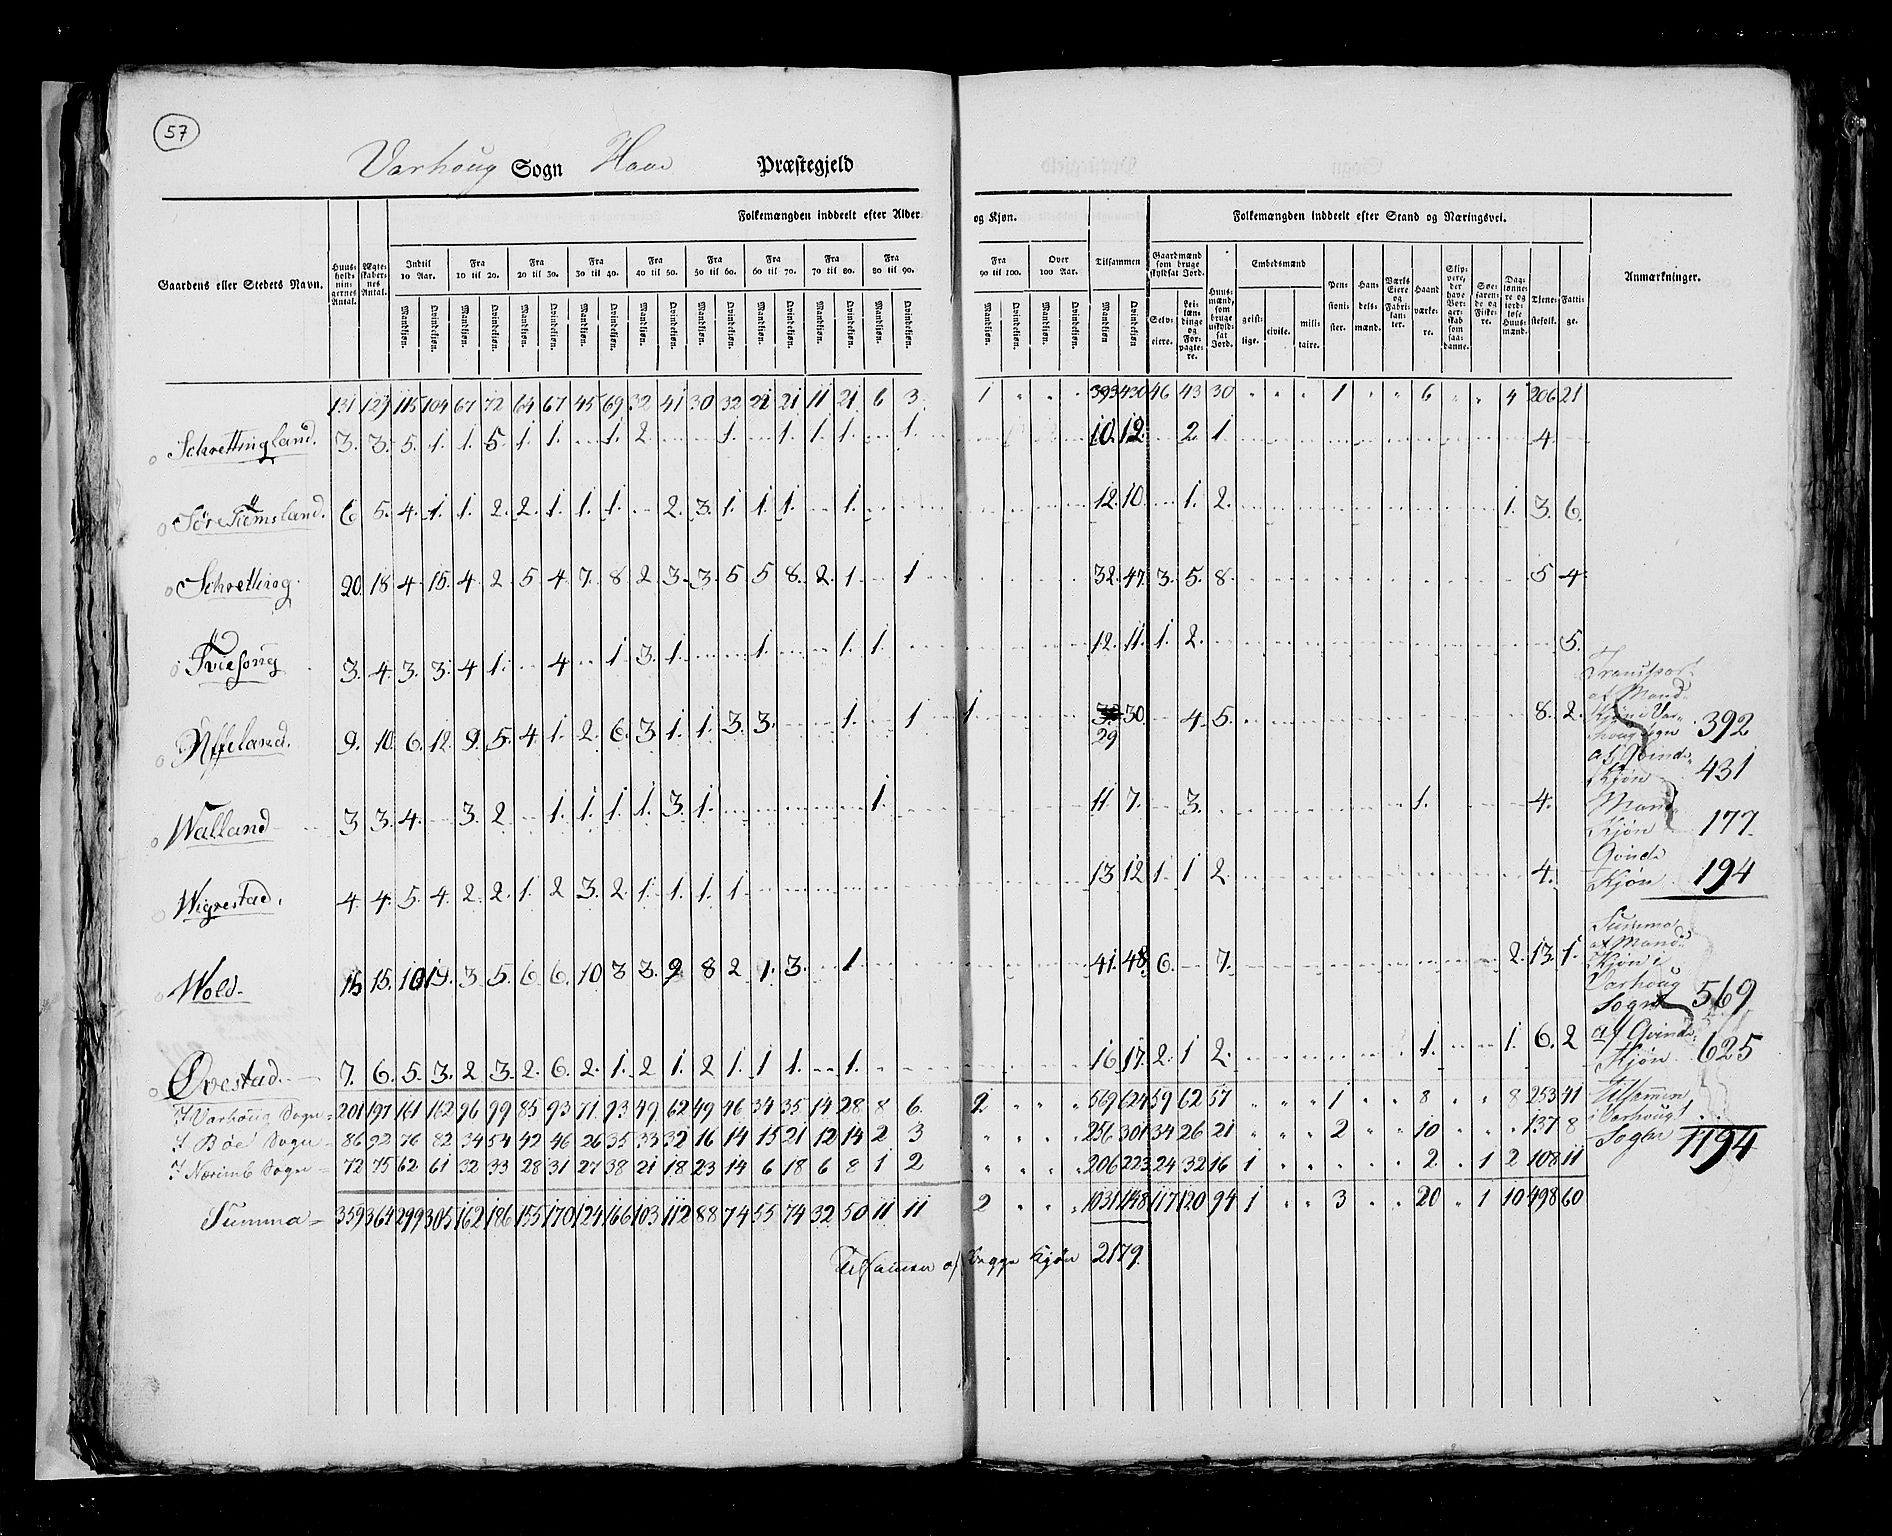 57
Varhoug Sogn Haae Præstegjeld
Folkemængden inddeelt efter Alder og Kjøn. Folkemængden inddeelt efter Stand og Næringsvei.
Gaardens eller Stedets Navn. Huusholdningernes Antal. Ægteskabernes Antal. Indtil 10 Aar. Fra 10 til 20. Fra 20 til 30. Fra 30 til 40. Fra 40 til 50. Fra 50 til 60. Fra 60 til 70. Fra 70 til 80. Fra 80 til 90. Fra 90 til 100. Over 100 Aar. Tilsammen Gaardmænd som bruge skyldsat Jord. Huusmænd, som bruge uskyldsat Jord. Embedsmænd Pensionister. Handelsmænd. Værks Eiere og Fabrikanter. Haandværkere. Skippere, der have Borgerskab som saadanne. Søefarende og Fiskere. Dagslønnere og jordløse Huusmænd. Tjenestefolk. Fattige. Anmærkninger.
Mandkjøn. Qvindekjøn. Mandkjøn. Qvindekjøn. Mandkjøn. Qvindekjøn. Mandkjøn. Qvindekjøn. Mandkjøn. Qvindekjøn. Mandkjøn. Qvindekjøn. Mandkjøn. Qvindekjøn. Mandkjøn. Qvindekjøn. Mandkjøn. Qvindekjøn. Mandkjøn. Qvindekjøn. Mandkjøn. Qvindekjøn. Mandkjøn Qvindekjøn Selveiere. Leilændinge og Forpagtere. geistlige. civile. militaire.
131 123 115 104 67 72 64 67 45 69 32 41 30 32 21 21 11 21 6 3 1 " " " 393 430 46 43 30 " " " 1 " " 6 " " 4 206 21
Schrettingland. 3. 3. 5. 1. 1. 5. 1. 1. 1. 2. 1. 1. 1. 1. 1. 10. 12. 2. 1 4
Søre Tiemsland. 6 5. 4. 1. 1. 2. 2. 1. 1. 1. 2. 3. 1. 1. 1. 1. 12. 10. 1. 2. 1. 3. 6.
Schretting. 20. 18 4 15. 4 2 5 4 7. 8 2 3. 3. 5 5 8. 2. 1. 1 32. 47. 3. 5. 8. 5 4
Tviesong 3. 4. 3. 3. 4 1. 4 1 3. 1. 1. 1. 1. 12. 11. 1. 2. 5.
Uffeland. 9. 10. 6. 12. 9. 5. 4. 1. 2. 6. 3. 1. 1. 3 3. 1. 1 1 29 30. 4 5. 8. 2.
Walland 3 3. 4. 3. 2 1. 1. 1. 1. 3. 1. 1. 11. 7. 3. 1. 4.
Wigrestad. 4. 4. 5. 4. 2. 2. 1. 2 3. 2. 1. 1. 1. 1. 13. 12. 1. 1 2. 4.
Wold. 15 15. 10 13. 3 5. 6 6. 10 3 3. 9 8 2 1. 3. 1 41. 48. 6. 7. 2. 13. 1.
Ovestad. 7. 6. 5. 3. 2 3. 2. 6. 2. 1. 2 1. 2 1. 1 1. 1. 16 17. 2. 1 2. 1. 1. 6. 2
I Varhoug Sogn = 201 197 161 162 96 99 85 93 71 93 49 62 49 46 34 35 14 28 8 6. 2 " " " 569 624 59 62 57 " " " 1 " " 8 " " 8 253 41
I Bøe Sogn = 86 92 76 82 34 54 42 46 26 35 33 32 16 14 15 21 12 14 2 3 " " " " 256 301 34 26 21 " " " 2 " " 10 " " " 137 8
I Nærimb Sogn = 72 75 62 61 32 33 28 31 27 38 21 18 23 14 6 18 6 8 1 2 " " " " 206 223 24 32 16 1 " " " " " 2 " 1 2 108 11
Summa = 359 364 299 305 162 186 155 170 124 166 103 112 88 74 55 74 32 50 11 11 2 " " " 1031 1148 117 120 94 1 " " 3 " " 20 " 1 10 498 60
Tilsamen af begge Kjøn 2179.
Transport
af Mand
Kjøn i Var=
houg Sogn 392
af Qvinde
Kjøn 431
Mand
Kjøn 177
Qvinde
Kjøn 194
Summa
af Mand
Kjøn i
Varhoug
Sogn 569
af Qvinde
Kjøn 625
Tilsammen
i Varhougs
Sogn 1194